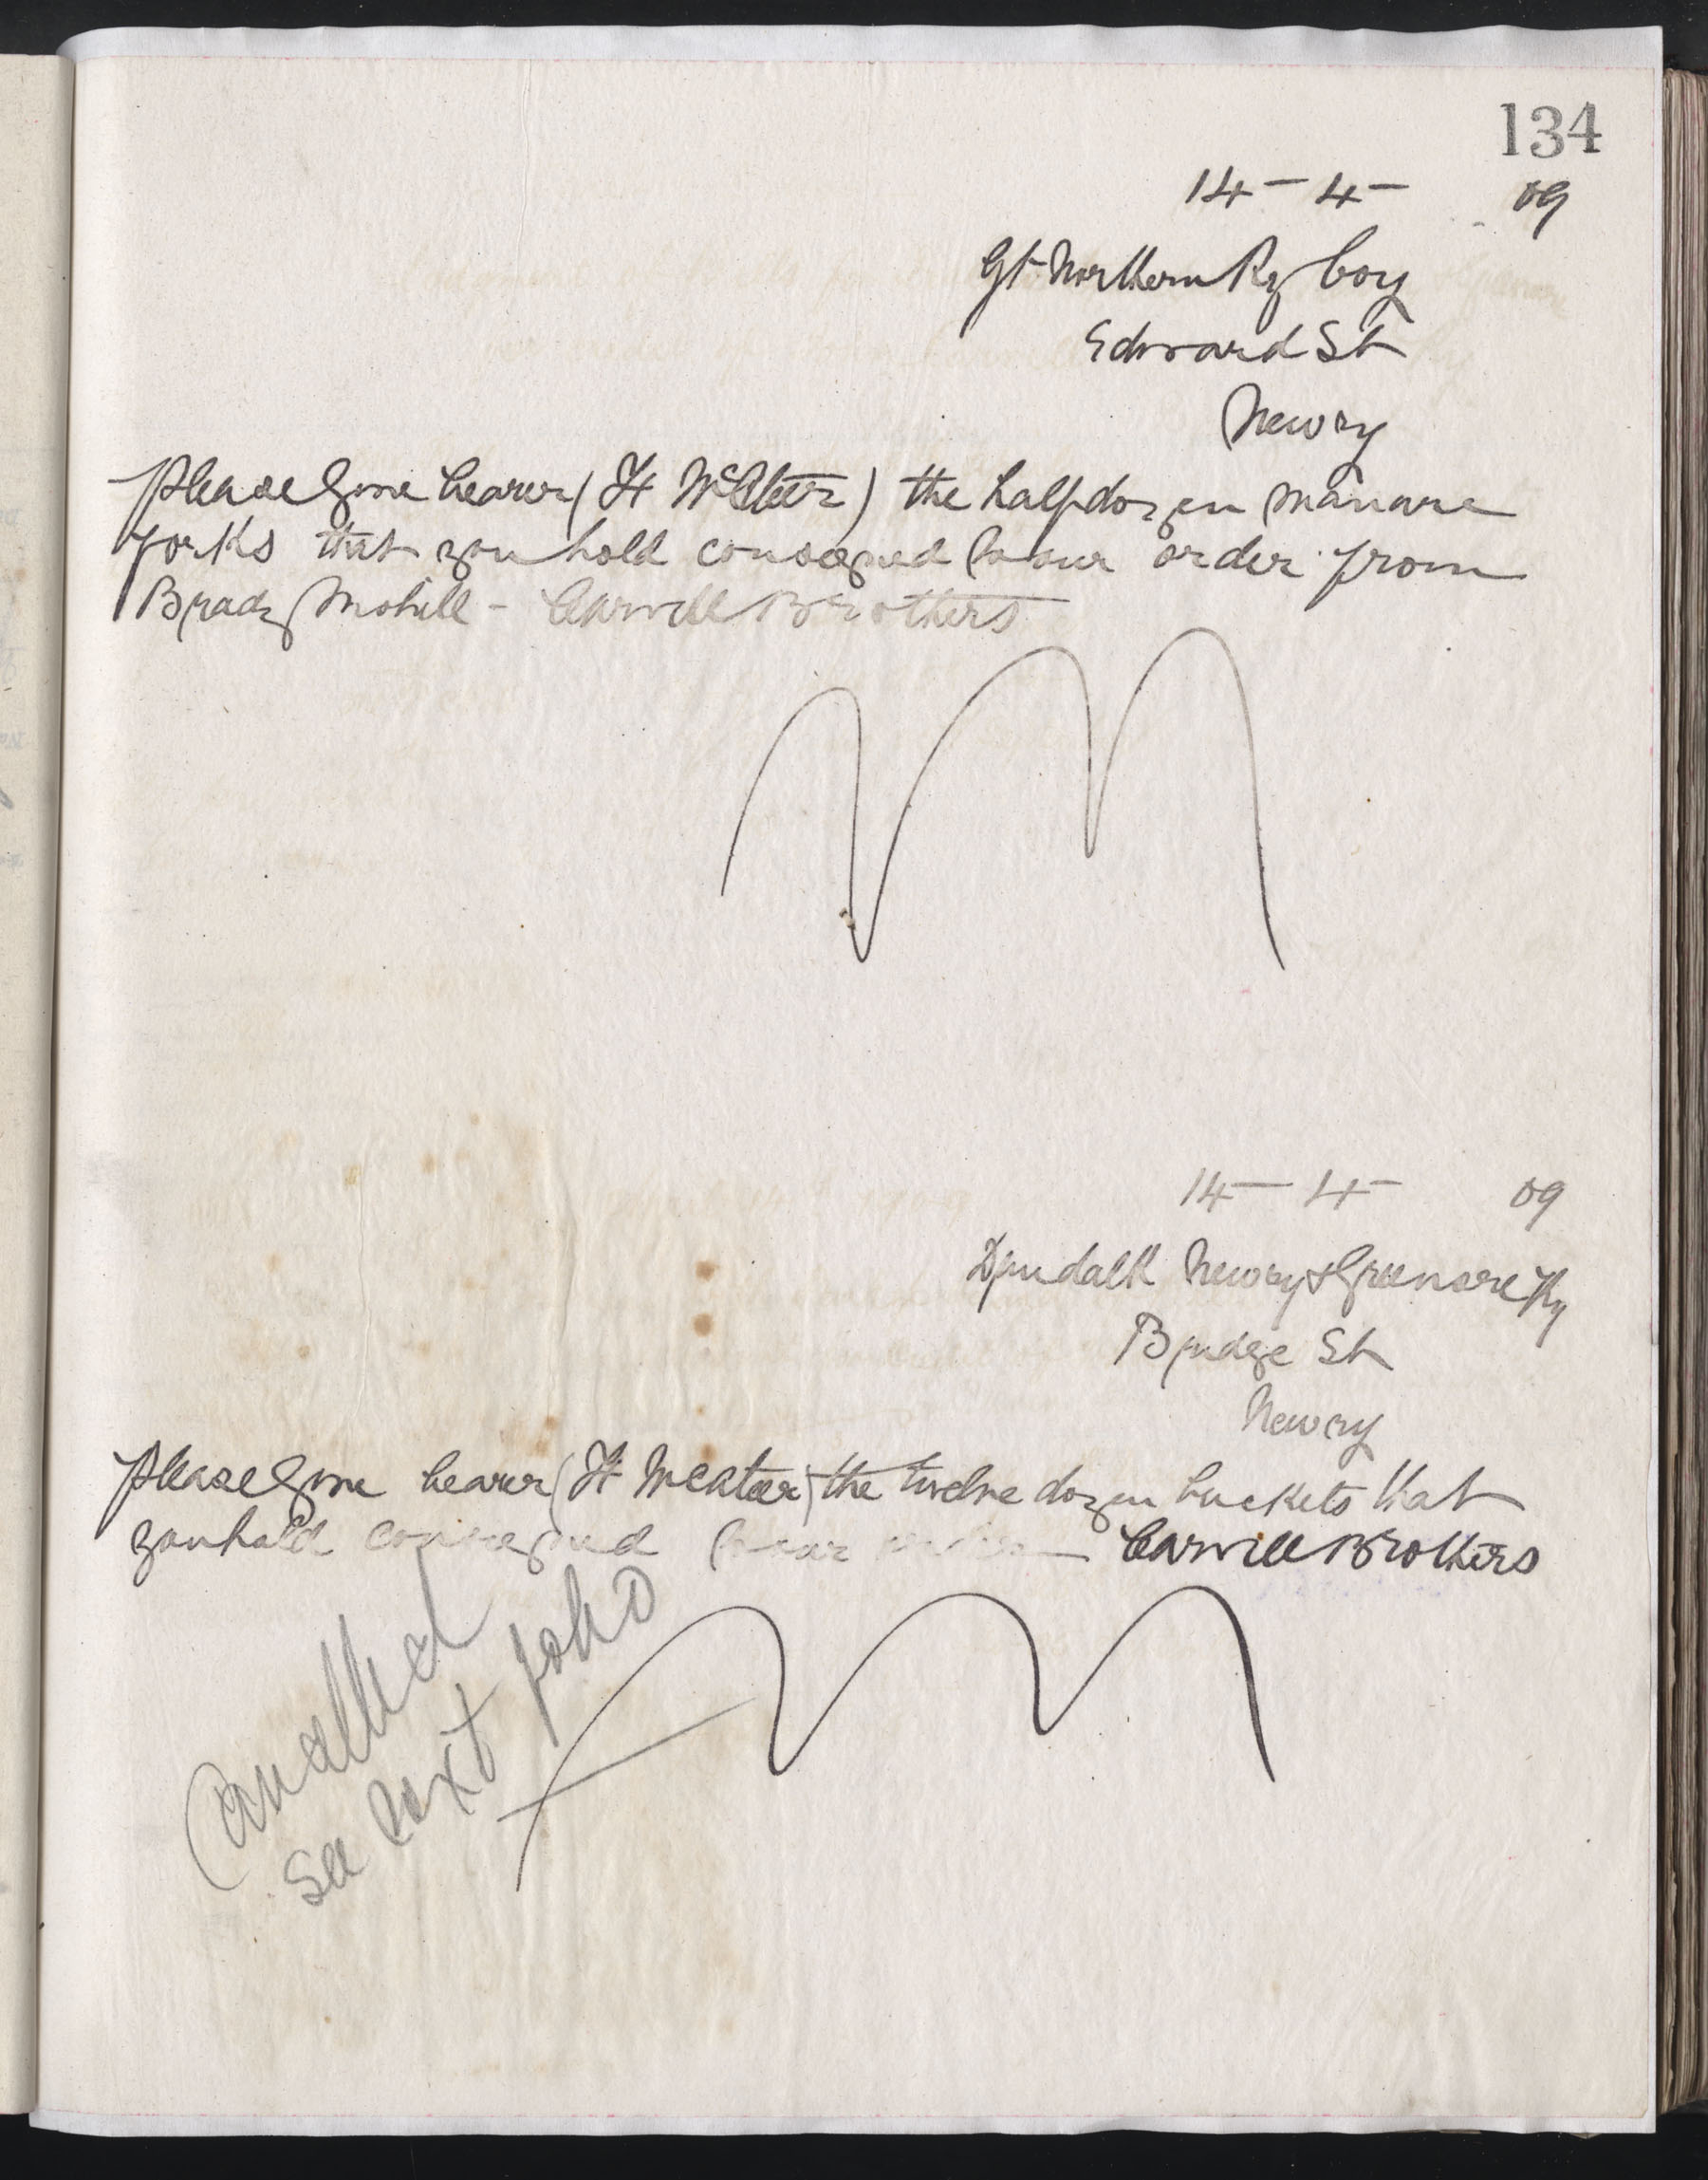 134
14 - 4 - 09
Gt Northern Ry Coy
Edward St
Newry
Please Give bearer (H McAteer) the half dozen manure
forks that you hold consigned to our order from
Brady Mohill - Carvill Brothers
14 - 4 - 09
Dundalk Newry & Greenore Ry
Bridge St
Newry
Please Give bearer (H McAteer) the twelve dozen buckets that
you hold consigned to our order Carvill Brothers
Cancelled
See next folio